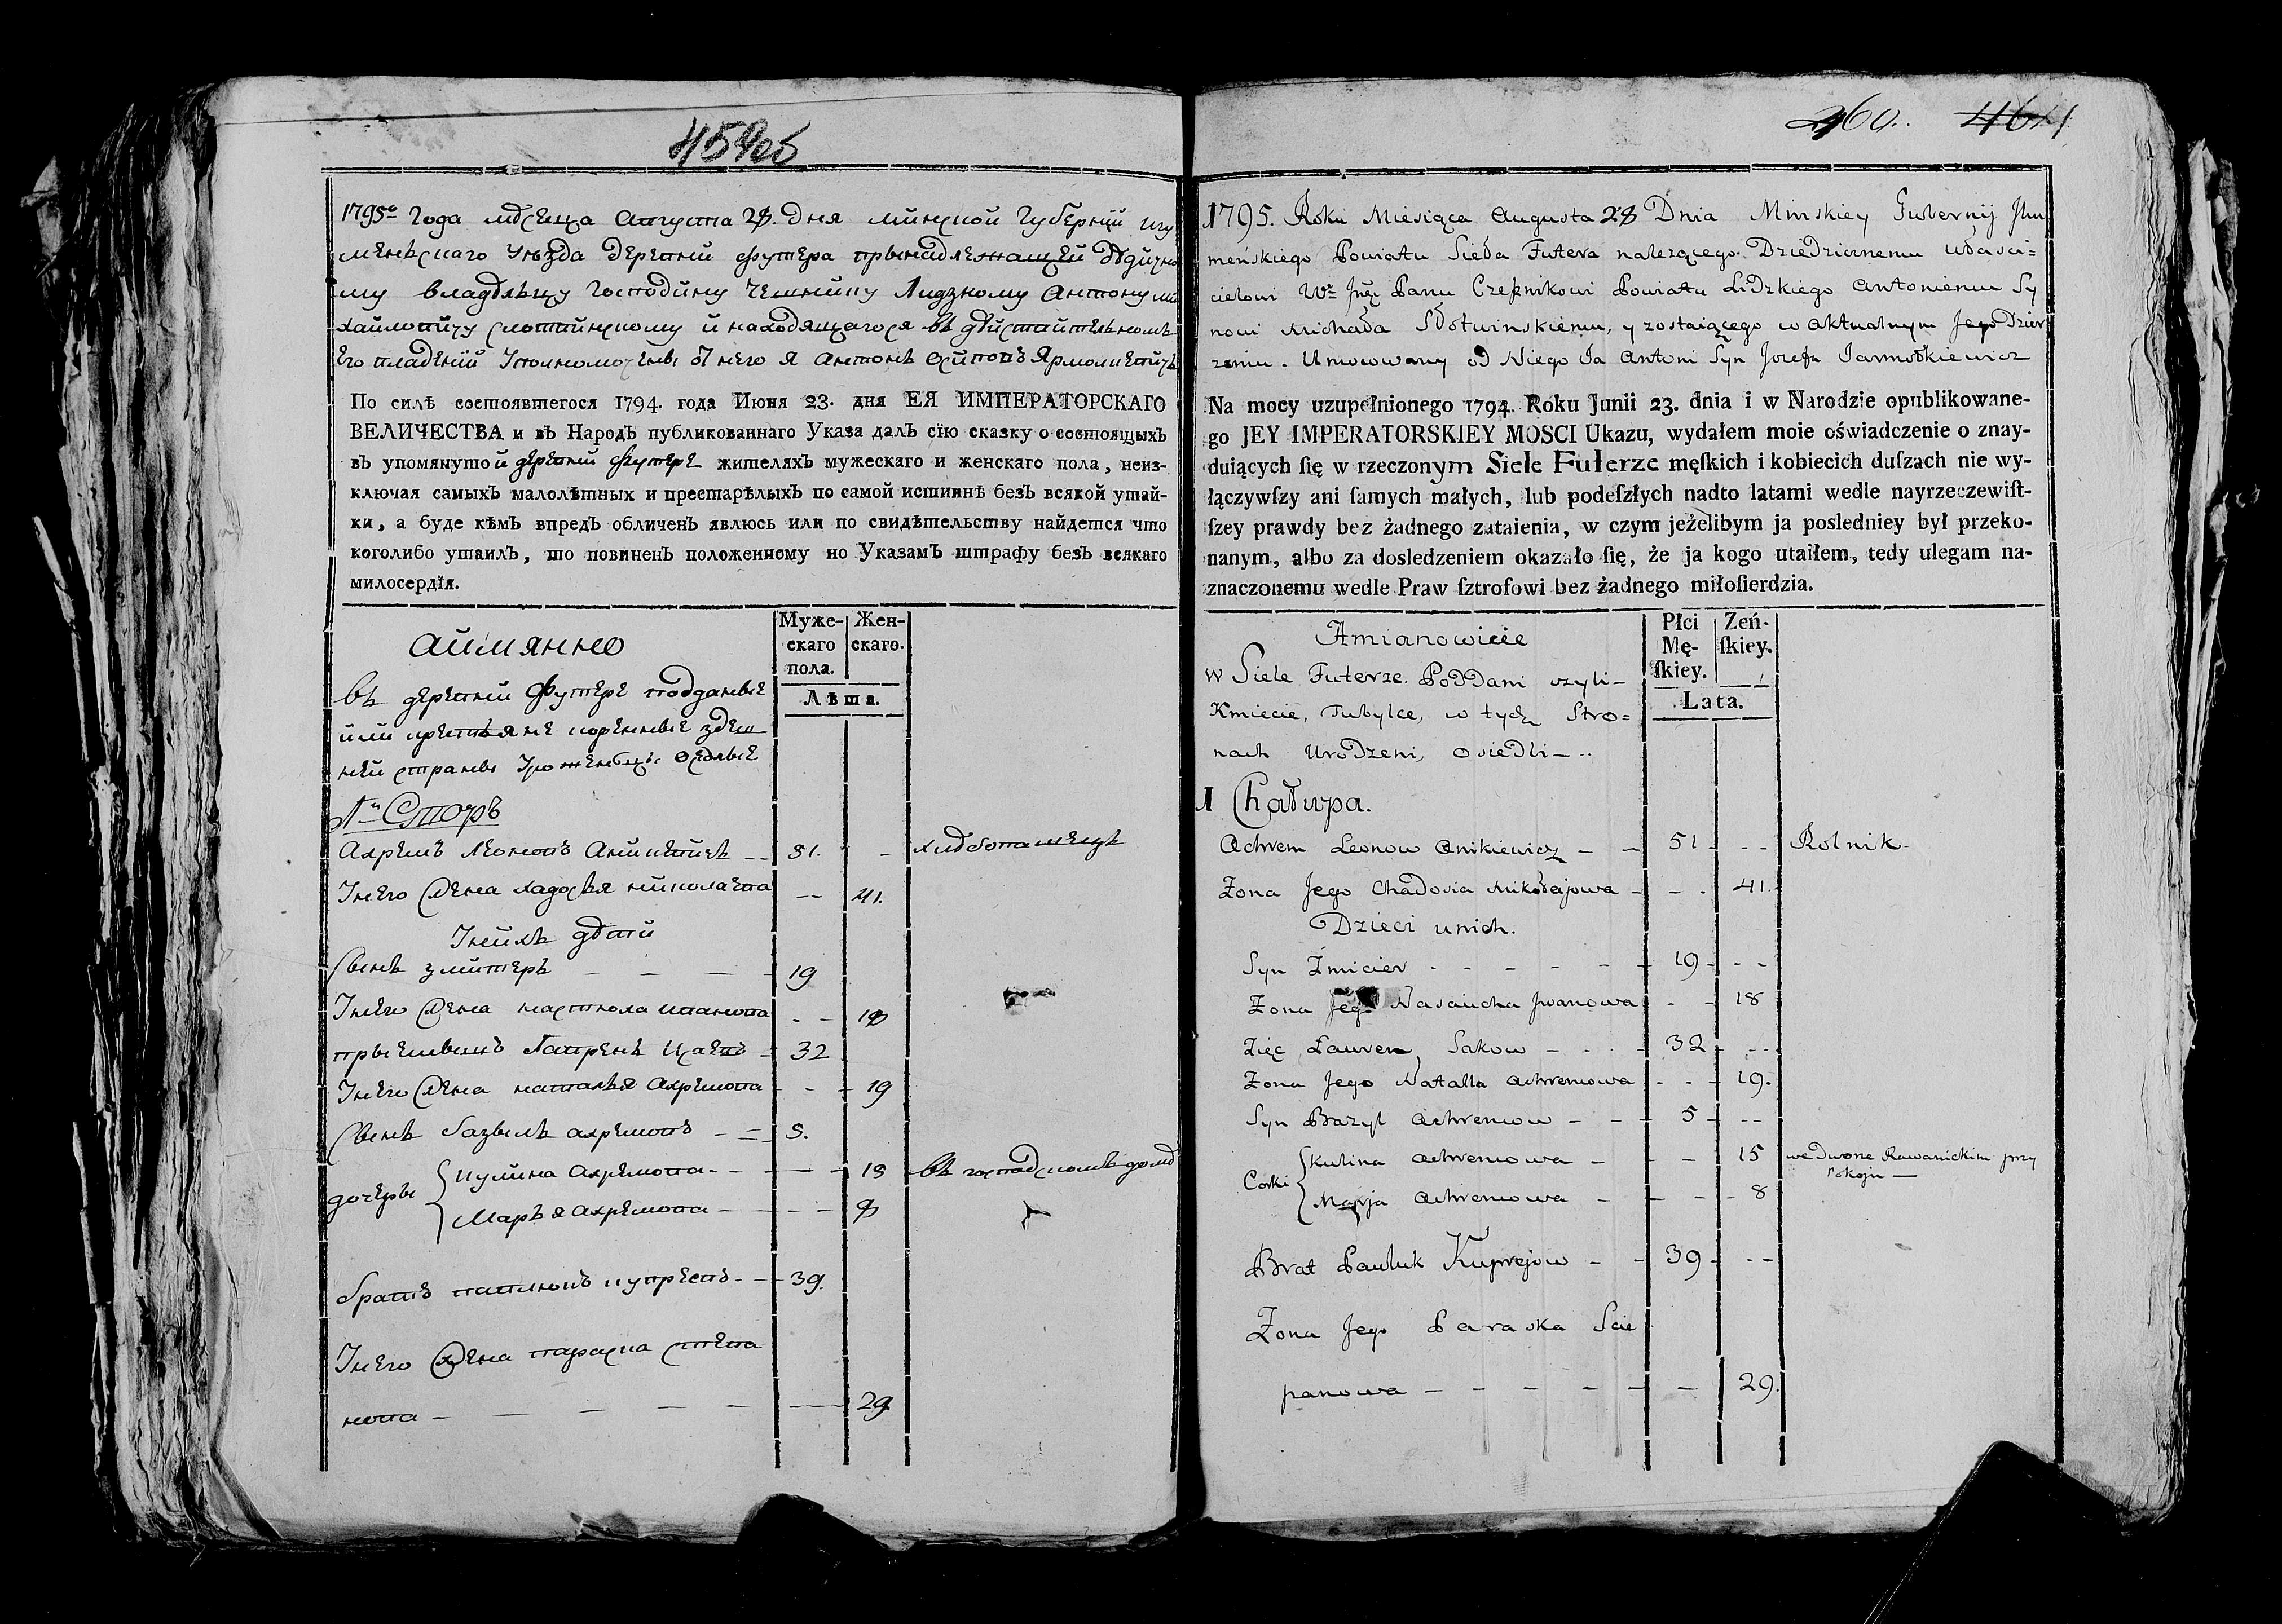 459об
1795го Года мѣсеца Августа 28. Дня Минской Губерніи Игу
менъскаго Уѣзда деревни Футера прынадлежащей Дѣдично
му владѣльцу Господину Чешнику Лидзкому Антону Ми
хайловичу Слотвинскому и находящагося въ дѣйствительномъ
Его владеніи Уполномоченны от него я Антонъ Осиповъ Ярмолкевичъ
По силѣ состоявшегося 1794. года Июня 23. дня ЕЯ ИМПЕРАТОРСКАГО
ВЕЛИЧЕСТВА и въ Народъ публикованнаго Указа далъ сїю сказку о состоящыхъ
въ упомянутой деревни Футере жителяхъ мужескаго и женскаго пола, неиз-
ключая самыхъ малолѣтных и престарѣлыхъ по самой истиннѣ безъ всякой утай-
ки, а буде кѣмъ впредъ обличенъ явлюсь или по свидѣтельству найдется что
коголибо утаилъ, то повиненъ положенному по Указамъ штрафу безъ всякаго
милосердїя.
Аймянно
Муже-
скаго
пола.
Жен-
скаго.
Лѣта.
въ деревни Футере подданые
или крестьяне коренные здеш
ней страны Уроженцы Оседлые
1й Сторъ
Ахремъ Леоновъ Аникевичъ - - 51. - хлѣбопашецъ
Унего жена Хадосья Николаева -- 41.
Унихъ дѣти
Сынъ Змитеръ - - - 19
Унего жена Настюха Иванова - - 18
прыемышъ Лавренъ Исаевъ - 32
Унего жена Наталья Ахремова - - 19
Сынъ Базыль Ахремовъ - - 5.
дочеры { Кулина Ахремова - - - - 15 въ господскомъ домѣ
Марья Ахремова - - - - 8
братъ Павлюкъ Купреевъ - - 39.
Унего жена Параска Степа
нова - - - - - - 29
460. 464
1795. Roku Miesiąca Augusta 28 Dnia Minskiey Gubernij Jhu
meńskiego Powiatu Sieła Futera nalezącego. Dziedzicznemu własci=
cielowi Wz. Jmć Panu Czesnikowi Powiatu Lidzkiego Antoniemu Sy
nowi Michała Słotwinskiemu, y zostaiącego w Aktualnym Jego Dzier
zeniu. Umocowany od Niego Ja Antoni Syn Jozefa Jarmołkiewicz
Na mocy uzupełnionego 1794. Roku Junii 23. dnia i w Narodzie opublikowane-
go JEY IMPERATORSKIEY MOSCI Ukazu, wydałem moie oświadczenie o znay-
duiących ſię w rzeczonym Siele Futerze męſkich i kobiecich duſzach nie wy-
łączywſzy ani ſamych małych, lub podeſzłych nadto latami wedle nayrzeczewiſt-
ſzey prawdy bez żadnego zataienia, w czym jeżelibym ja posledniey był przeko-
nanym, albo za dosledzeniem okazało ſię, że ja kogo utaiłem, tedy ulegam na-
znaczonemu wedle Praw ſztrofowi bez żadnego miłoſierdzia.
Amianowicie
Płci
Mę-
ſkiey.
Zeń-
ſkiey.
Lata.
w Siele Futerze. Poddani czyli -
Kmiecie, Tubylce, w tych Stro=
nach Urodzeni, Osiedli - ..
1 Chałupa.
Achrem Leonow Anikiewicz - - 51 - - - Rolnik -
Zona Jego Chadosia Mikołajowa - - - 41.
Dzieci unich.
Syn Zmicier - - - - - - 19 - - -
Zona Jego Nasaucha Jwanowa - - 18
Zięć Lauren Sakow - - - - 32 - - -
Zona Jego Natalla Achremowa - - - 19.
Syn Bazyl Achremow - - - 5 - - -
Corki { Kulina Achremowa - - - 15 we Dworze Rawanickim przy
Pokoju -
Marja Achremowa - - - - 8
Brat Pauluk Kuprejow - - 39 - - -
Zona Jego Paraska Scie
panowa - - - - - - 29.